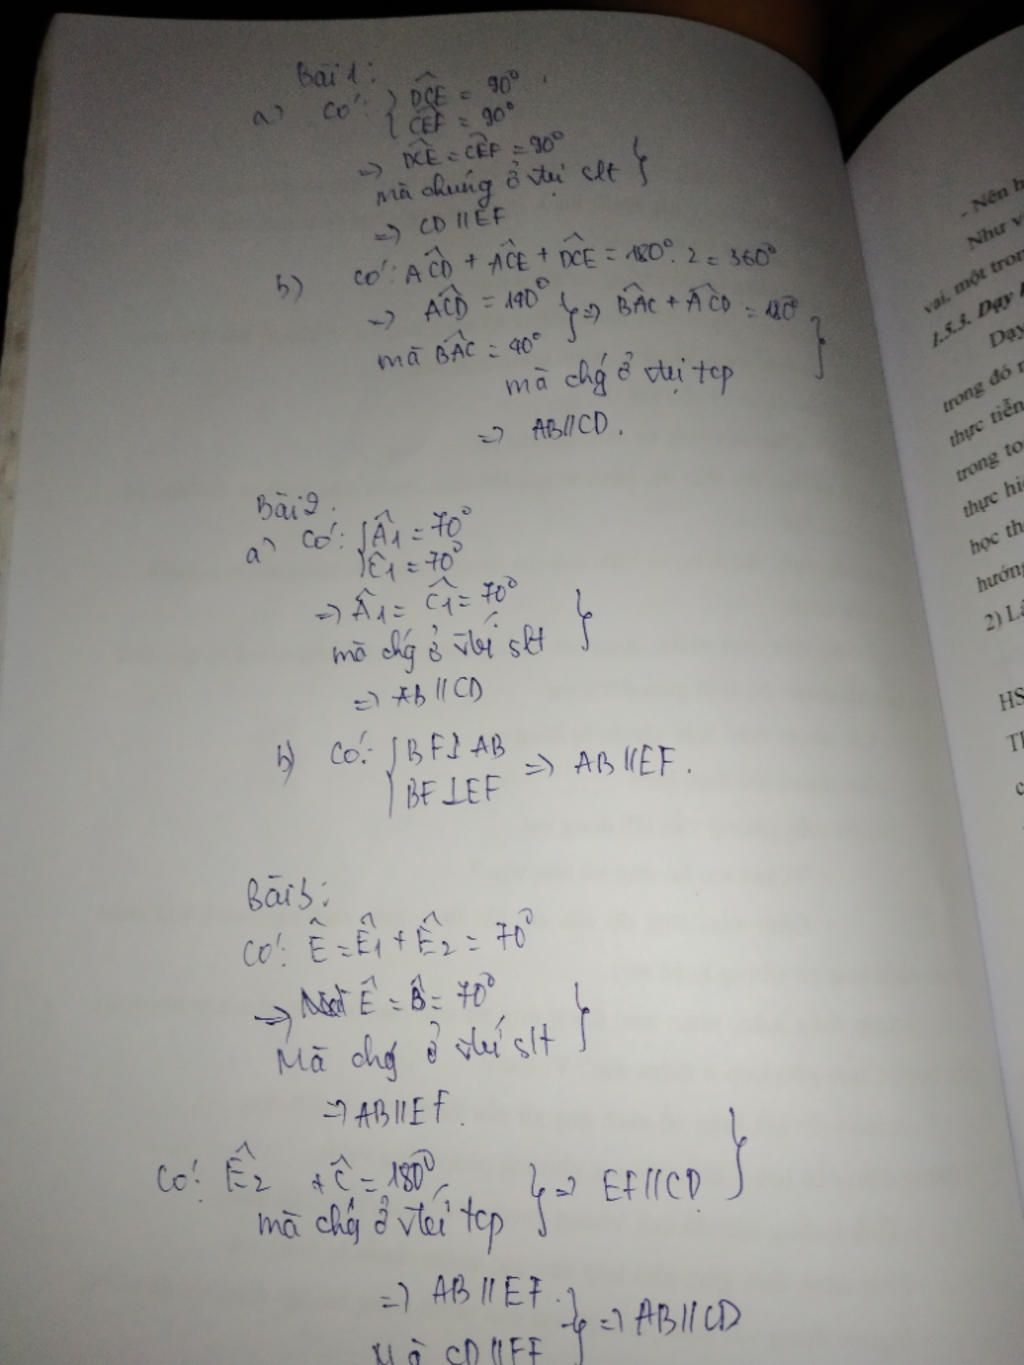 Bài 1:
a) Có: { DCE = 90°
CEF = 90°
=> DCE = CEF = 90°
mà chúng ở vtrị slt }
=> CD // EF
b) Có: ACD + ACE + DCE = 180°. 2 = 360°
=> ACD = 140° } => BAC + ACD = 180°
mà BAC = 40°
mà chg ở vtrị tcp }
=> AB // CD.
Bài 2.
a) Có: { Â1 = 70°
Ĉ1 = 70°
=> Â1 = Ĉ1 = 70°
mà chg ở vtrí slt }
=> AB // CD
b) Có: { BF ⊥ AB => AB // EF.
BF ⊥ EF
Bài 3:
Có: Ê = Ê1 + Ê2 = 70°
=> Ê = B̂ = 70°
Mà chg ở vtrí slt }
=> AB // EF.
Có: Ê2 + Ĉ = 180° } => EF // CD }
mà chg ở vtrí tcp
=> AB // EF. } => AB // CD
Mà CD // EF
- Nên h
Như v
vai, một tron
1.5.3. Dạy h
Dạy
trong đó n
thực tiễn
trong to
thực hi
học th
hướng
2) Lấ
HS
Th
c